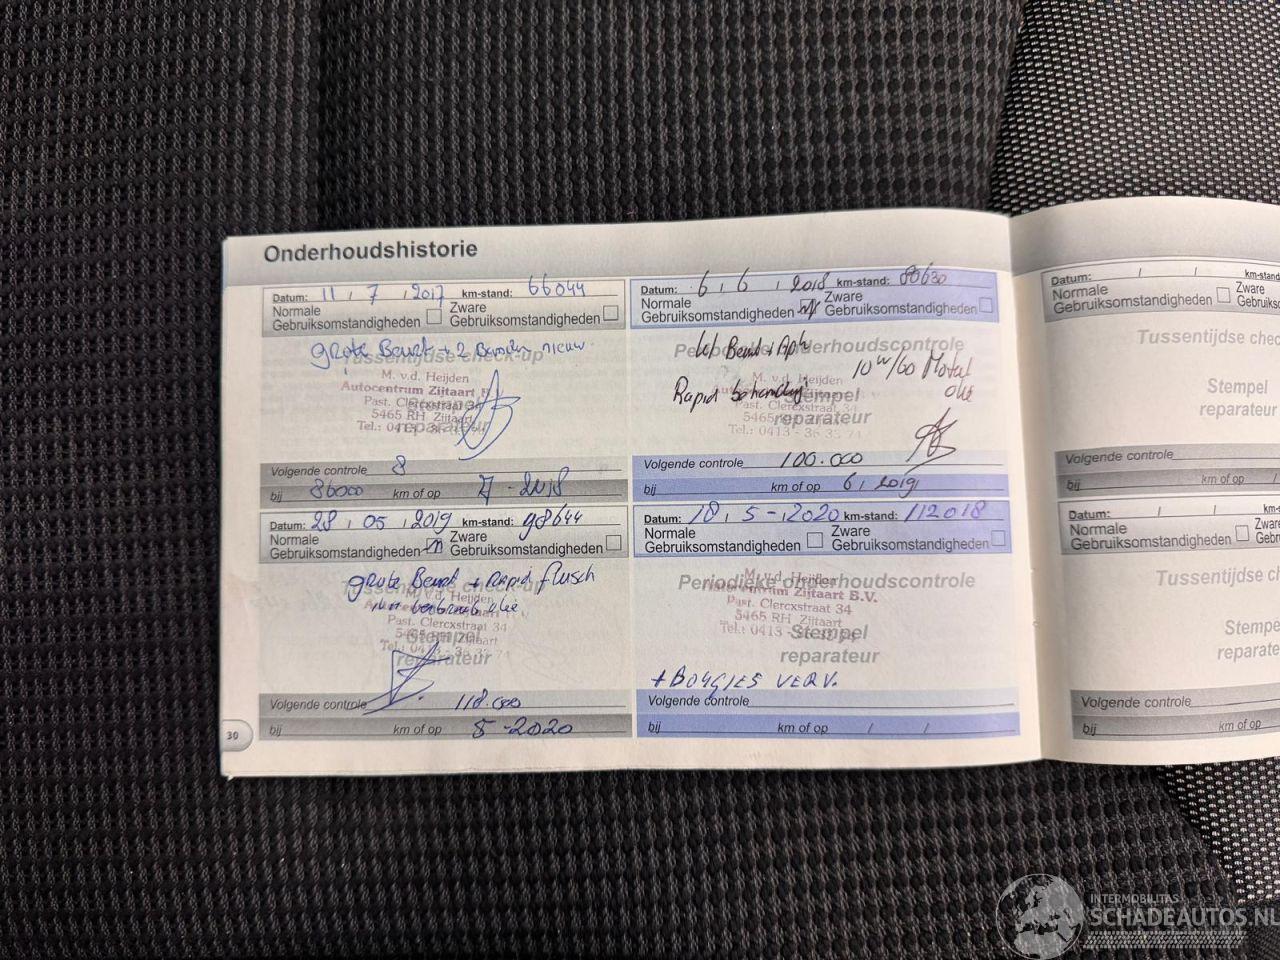 Onderhoudshistorie
Datum: 11 / 7 / 2017 km-stand: 66044
Normale Gebruiksomstandigheden
Zware Gebruiksomstandigheden
grote Beurt + 2 nieuw
Tussentijdse check-up
M. v.d. Heijden
Autocentrum Zijtaart
Past. Clercxstraat 34
5465 RH Zijtaart
Tel.: 0413 - 36
Stempel
reparateur
Volgende controle 8
bij 86000 km of op 7 - 2018
Datum: 6 / 6 / 2018 km-stand: 80630
Normale Gebruiksomstandigheden
Zware Gebruiksomstandigheden
Beurt + Apk
Periodieke onderhoudscontrole
10w/60 Motul
olie
Rapid behandeling
M. v.d. Heijden
Past. Clercxstraat 34
Tel.: 0413 - 36 33 74
Stempel
reparateur
Volgende controle 100.000
bij km of op 6 / 2019
Datum: 28 / 05 / 2019 km-stand: 98644
Normale Gebruiksomstandigheden
Zware Gebruiksomstandigheden
grote Beurt + Rapid flusch
Tussentijdse check-up
olie
Past. Clercxstraat 34
5465 RH Zijtaart
Tel.: 0413 - 36 33 74
Stempel
reparateur
Volgende controle 118.000
bij km of op 5 - 2020
Datum: 18 / 5 - / 2020 km-stand: 112018
Normale Gebruiksomstandigheden
Zware Gebruiksomstandigheden
M. v.d. Heijden
Periodieke onderhoudscontrole
Autocentrum Zijtaart B.V.
Past. Clercxstraat 34
5465 RH Zijtaart
Tel.: 0413 - 36 33 74
Stempel
reparateur
+ BOUGIES VERV.
Volgende controle
bij km of op / /
30
Datum: / / km-stand
Normale Gebruiksomstandigheden
Zware Gebruiksoms
Tussentijdse chec
Stempel
reparateur
Volgende controle
bij km of op /
Datum: / / km-stan
Normale Gebruiksomstandigheden
Zware Gebruiksom
Tussentijdse ch
Stempe
reparate
Volgende controle
bij km of op
INTERMOBILITAS
SCHADEAUTOS.NL